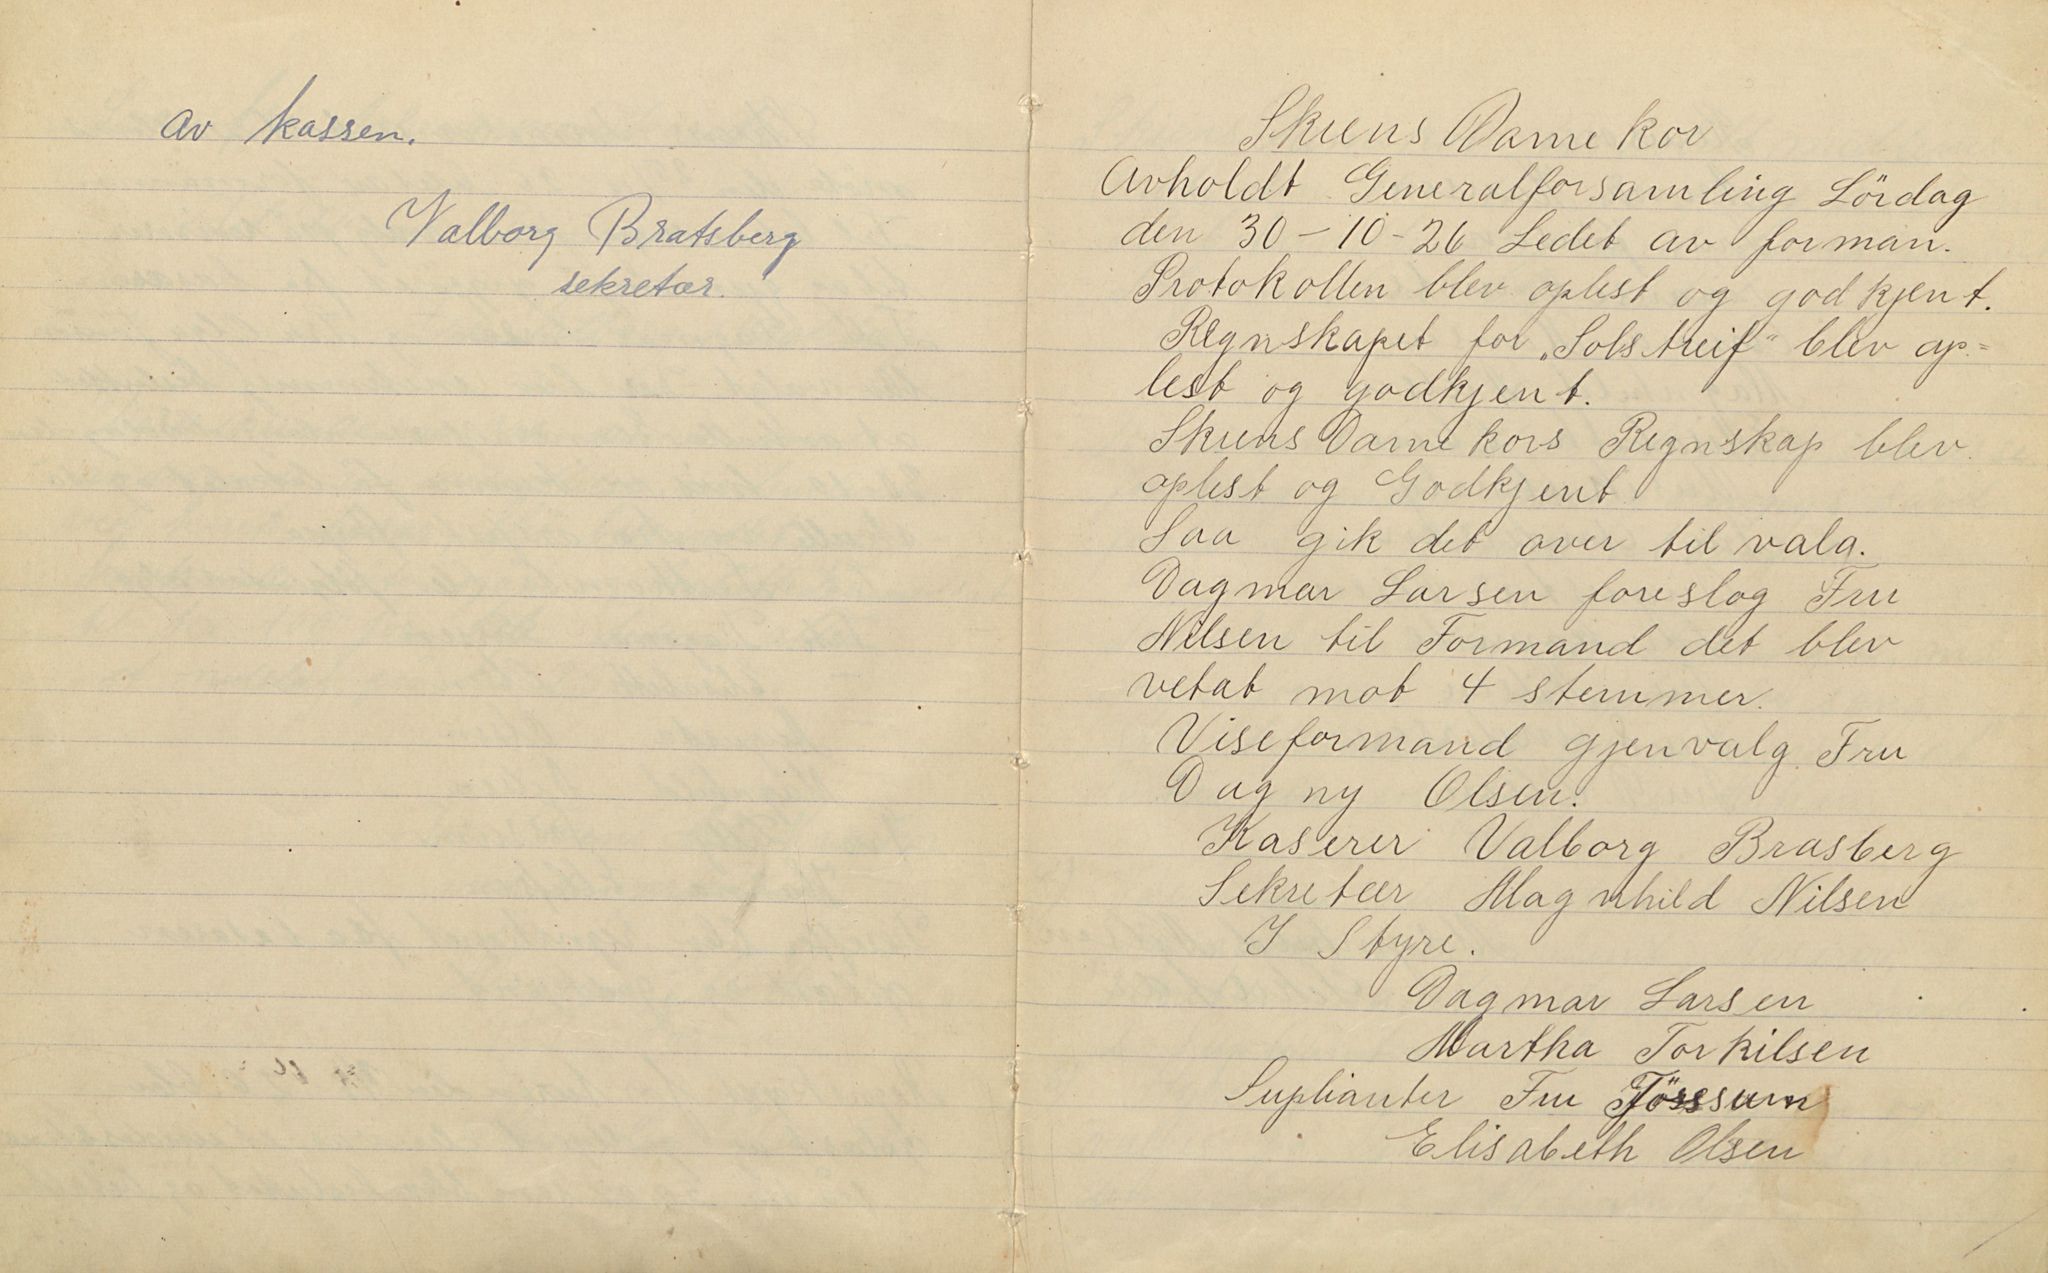 av kassen.
Valborg Bratsberg
sekretær.
Skiens Dame kor
Avholdt Generalforsamling Lördag
den 30-10-26 Ledet av forman.
Protokollen blev oplest og godkjent.
Regnskapet for „Solstreif" blev op=
lest og godkjent.
Skiens Dame kors Regnskap blev
oplest og Godkjent
Saa gik det over til valg.
Dagmar Larsen foreslog Fru
Nilsen til Formand det blev
vetat mot 4 stemmer.
Viseformand gjenvalg Fru
Dagny Olsen.
Kaserer Valborg Brasberg
Sekretær Magnhild Nilsen
I Styre.
Dagmar Larsen
Martha Torkilsen
Suplianter Fru
Elisabeth Olsen